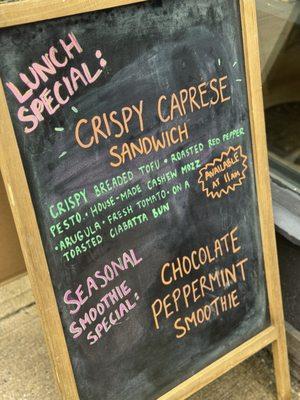 LUNCH
SPECIAL:
CRISPY CAPRESE
SANDWICH
CRISPY BREADED TOFU • ROASTED RED PEPPER
PESTO • HOUSE-MADE CASHEW MOZZ
• ARUGULA • FRESH TOMATO • ON A
TOASTED CIABATTA BUN
AVAILABLE
AT 11AM
SEASONAL
SMOOTHIE
SPECIAL:
CHOCOLATE
PEPPERMINT
SMOOTHIE